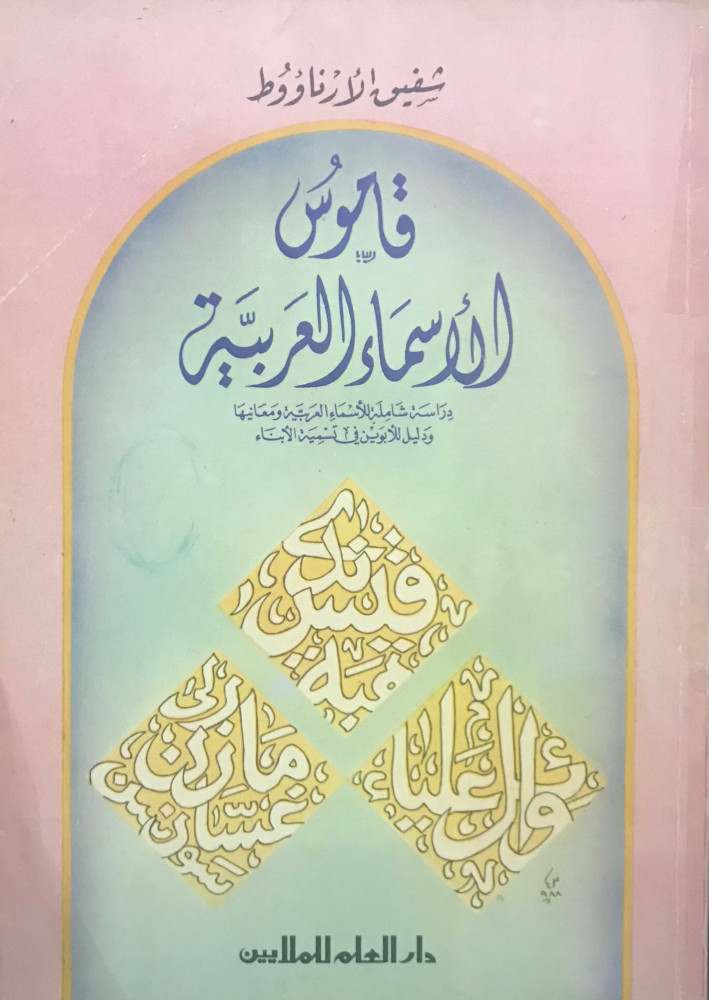 شفيق الأرناؤوط
قاموسُ
الأسماء العَربيَّة
دراسة شاملة للأسماء العربية ومعانيها
ودليل للأبوين في تسمية الأبناء
قيس
هبة
وائل علياء
مازن
غسّان
سوسن
دار العلم للملايين